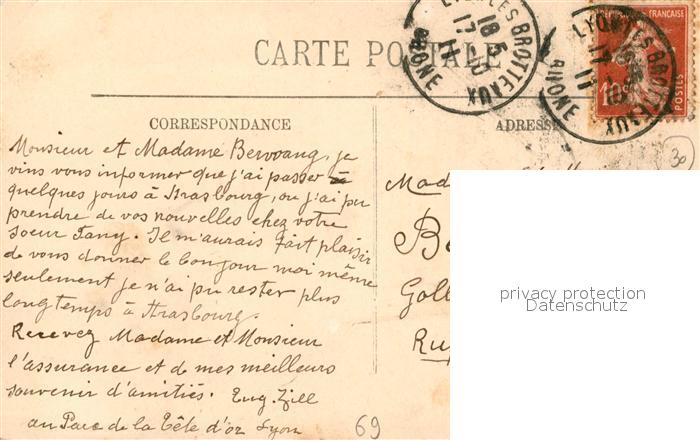 CARTE POSTALE
LYON LES BROTTEAUX
RHONE
LYON LES BROTTEAUX
RHONE
FRANÇAISE
POSTES
10
CORRESPONDANCE
ADRESSE
30
Monsieur et Madame Bervoang, je
vins vous informer que j'ai passer à
quelques jours à Strasbourg, ou j'ai pu
prendre de vos nouvelles chez votre
soeur Fany. Il m'aurais fait plaisir
de vous donner le bonjour moi même
seulement je n'ai pu rester plus
longtemps à Strasbourg.
Recevez Madame et Monsieur
l'assurance et de mes meilleurs
souvenir d'amitiés. Eug. Zill
au Parc de la Tête d'or Lyon
69
Mada
Be
Goll
Ruf
privacy protection
Datenschutz